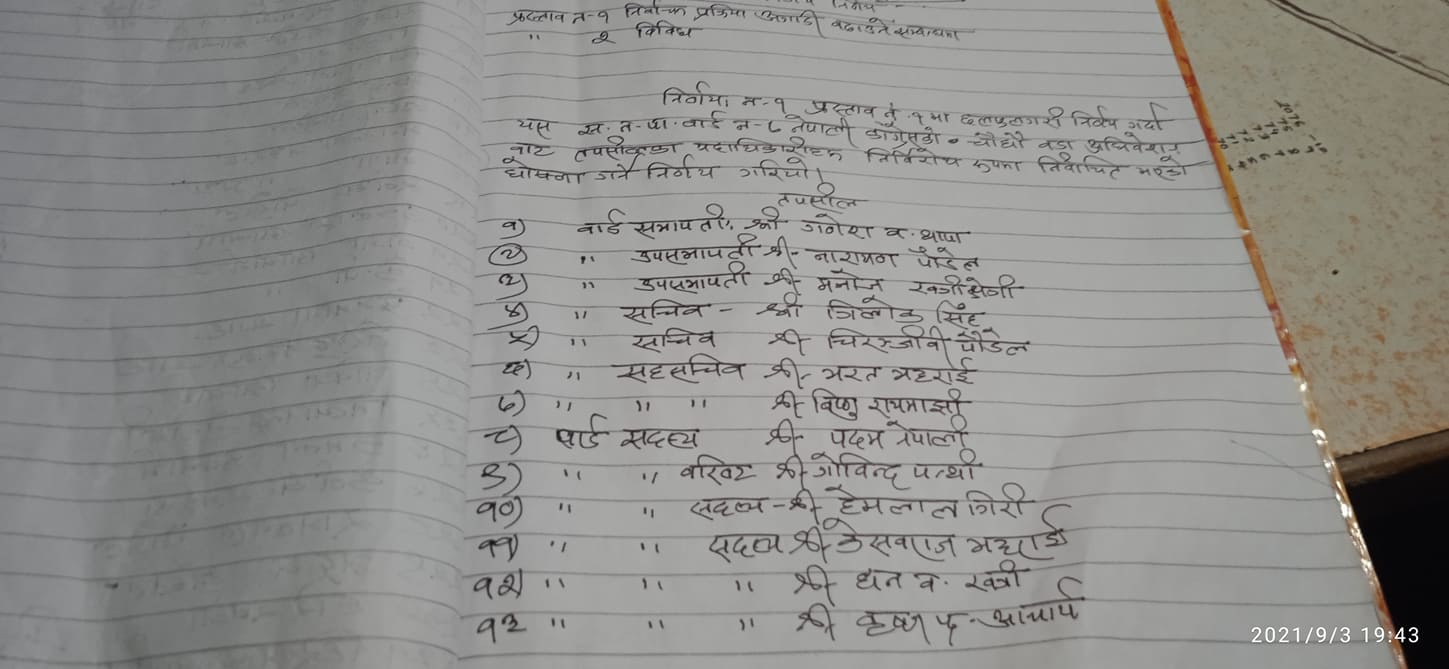 प्रस्ताव न-१ निर्वाचन प्रक्रिया अगाडी बढाउने सम्बन्धमा
" २ विविध
निर्णय न-१ प्रस्ताव नं. १ मा छलफल गरी निर्णय गर्दा
यस न.पा. वार्ड न-८ नेपाली काँग्रेसको चौधौ वडा अधिवेशन
बाट तपसीलका पदाधिकारीहरु निर्विरोध रुपमा निर्वाचित भएको
घोषणा गर्ने निर्णय गरियो।
तपसील
१) वार्ड सभापती, श्री गणेश व. थापा
२) " उपसभापती श्री- नारायण पौडेल
३) " उपसभापती श्री- मनोज
४) " सचिव - श्री त्रिलोक सिंह
५) " सचिव श्री चिरन्जीवी पौडेल
६) " सहसचिव श्री- भरत भट्टराई
७) " " " श्री विष्णु रायमाझी
८) वार्ड सदस्य श्री- पदम नेपाली
९) " " वरिष्ट श्री गोविन्द पन्थी
१०) " " सदस्य - श्री हेमलाल गिरी
११) " " सदस्य श्री केसवराज भट्टराई
१२) " " " श्री धन व. खत्री
१३ " " " श्री कृष्ण प- आचार्य
2021/9/3 19:43